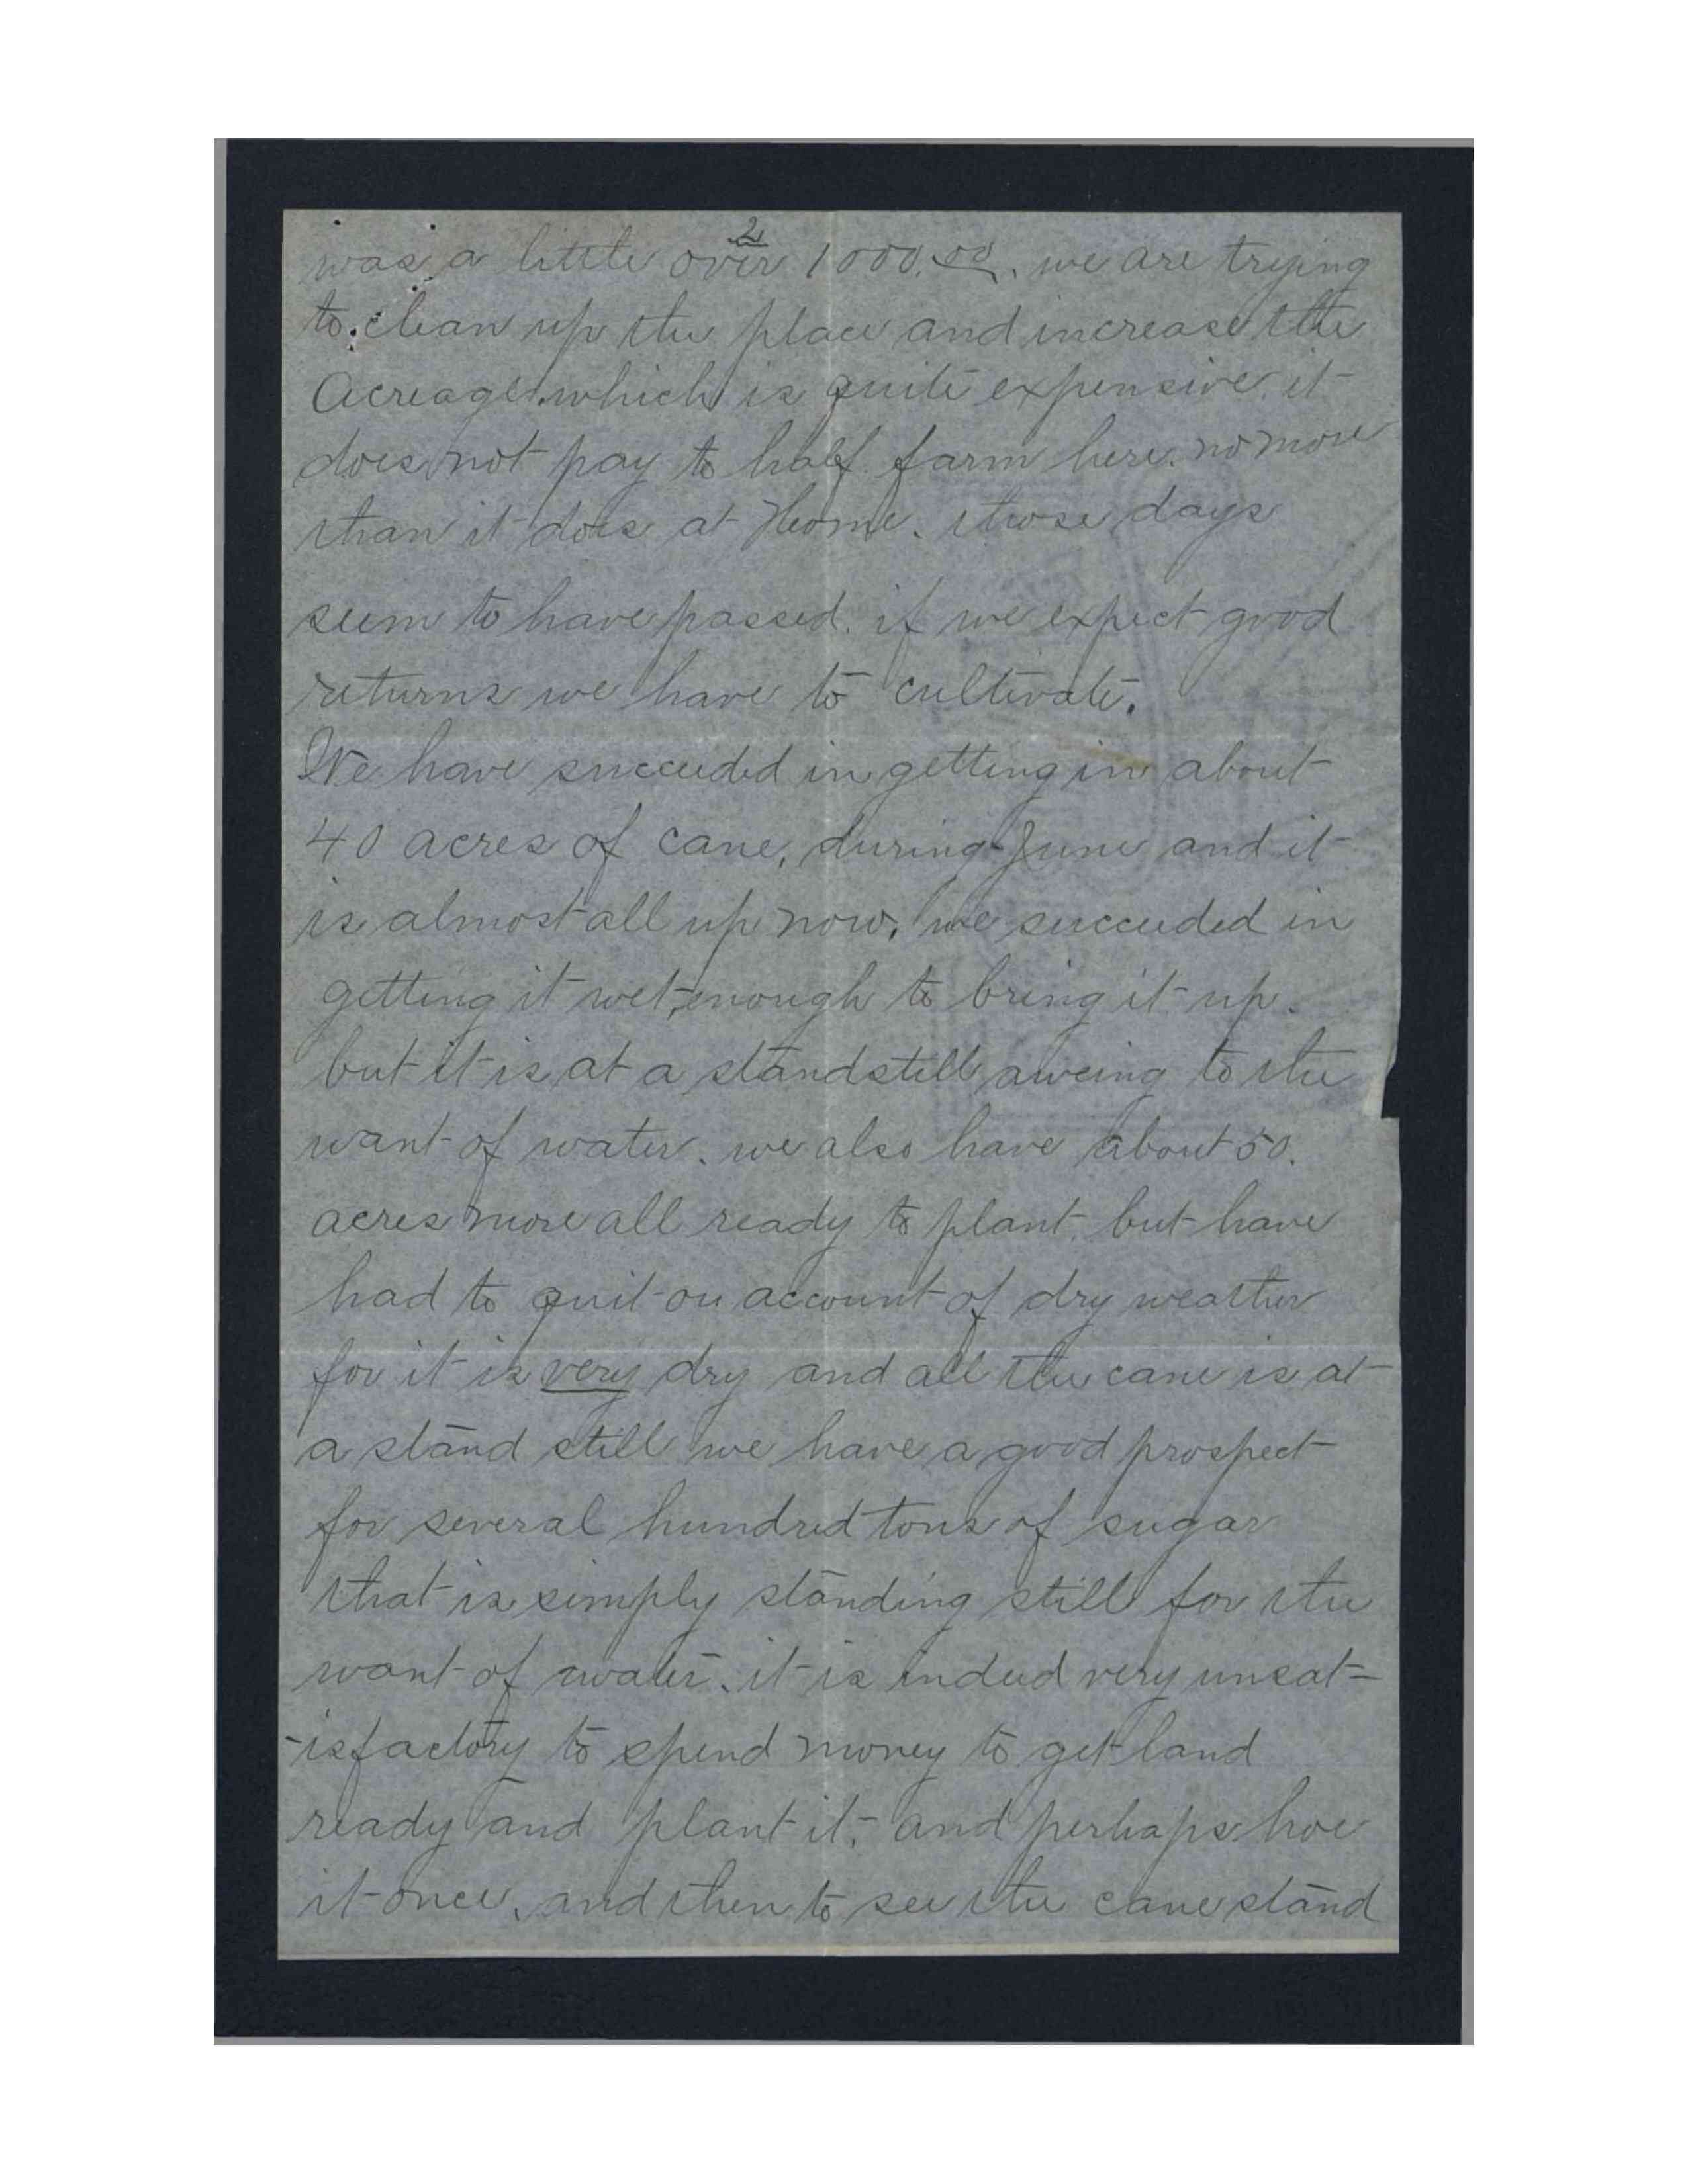 2
was a little over 1000.00. we are trying
to clean up the place and increase the
Acreage. which is quite expensive. it
does not pay to half farm here. no more
than it does at Home. those days
seem to have passed. if we expect good
returns we have to cultivate.
We have succeeded in getting in about
40 acres of cane, during June and it
is almost all up now, we succeeded in
getting it wet, enough to bring it up.
but it is at a standstill aweing to the
want of water. we also have about 50.
acres more all ready to plant. but have
had to quit on account of dry weather
for it is very dry and all the cane is at
a stand still we have a good prospect
for several hundred tons of sugar
that is simply standing still for the
want of water. it is indeed very unsat=
-isfactory to spend money to get land
ready and plant it, and perhaps hoe
it once, and then to see the cane stand